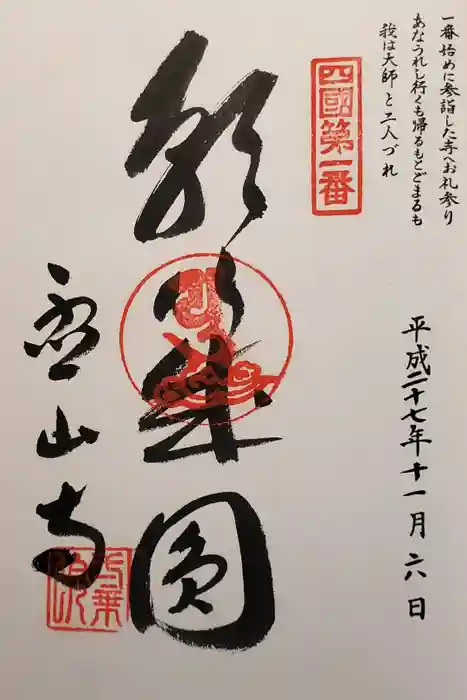 一番始めに参詣した寺へお礼参り
あなうれし行くも帰るもとどまるも
我は大師と二人づれ
四國第一番
平成二十七年十一月六日
願行成圓
霊山寺